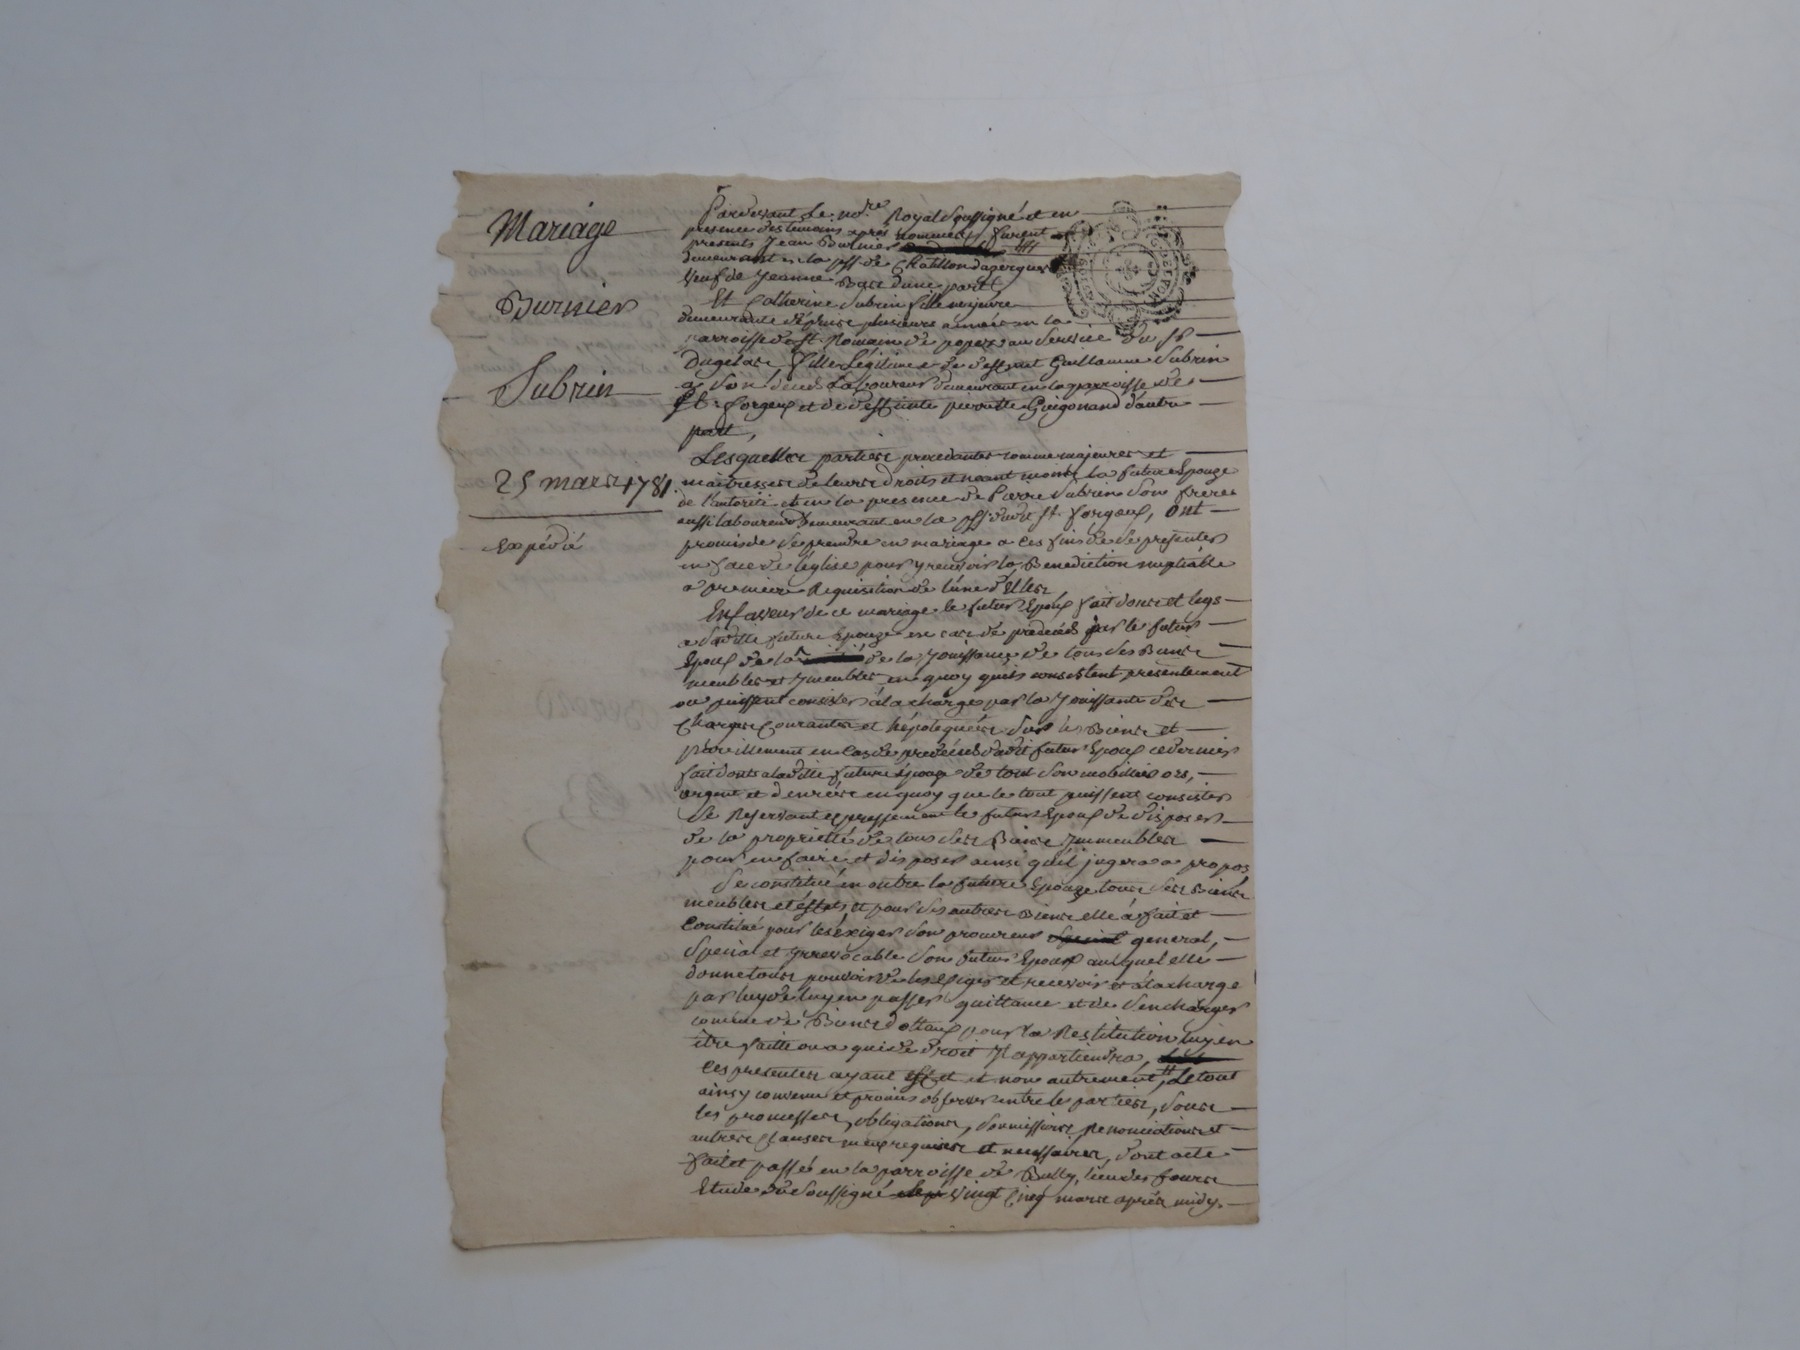 Mariage
Burnier
Subrin
25 mars 1781.
Expédié
Pardevant le no.re Royal soussigné et en
presence des temoins après nommés furent
presents Jean Burnier
demeurant en la psse de Chatillon dazergues
veuf de Jeanne dune part
Et Catherine Subrin fille majeure
demeurante depuis plusieurs années en la
parroisse de St. Romain de popey au service du Sr
Dugelay fille Légitime de deffunt Guillaume Subrin
a son deceds Laboureur demeurant en la parroisse de
St. forgeux et de deffunte pierrette Guigonand d'autre
part,
Lesquelles parties procedantes comme majeures et
maitresses de leurs droits et neant moins la future Epouze
de l'autorité et en la presence de Pierre Subrin son frere
aussi laboureur demeurant en la psse dudit St. forgeux, ont
promis de se prendre en mariage a ces fins de se presenter
en face de l'église pour y recevoir la Benediction nuptialle
a premiere Requisition de l'une d'Elles
En faveur de ce mariage le futur Epoux fait dons et legs
a sa ditte future Epouze en cas de predeceds par le futur
Epoux de la de la Jouissance de tous ses Biens
meubles et Jmeubles en quoy quils consistent presentement
ou puissent consister à la charge par la Jouissante des
Charges Courantes et hépotequées sur les Biens et
pareillement en cas de predeceds dudit futur Epoux ce dernier
fait dons a la ditte future épouze de tout son mobillier or,
argent et denrées en quoy que le tout puissent consister
se Reservant expressement le futur Epoux de disposer
de la proprietté de tous ses Biens Jmmeubles
pour en faire et disposer ainsi quil jugera a propos
se constitué en outre la future Epouze tous ses Biens
meubles et effets et pour ses autres Biens elle à fait et
Constitué pour les éxiger son procureur special general,
Special et Jrrevocable son futur Epoux auquel elle
donne tous pouvoir de les exiger et recevoir à la charge
par luy de luy en passer quittance et de s'en charger
comme de Biens dottaux pour la Restitution luy en
être faitte ou a qui de droit Jl appartiendra,
Ces presentes ayant effet et non autrement, Le tout
ainsy convenu et promis observer entre les parties, sous
les promesses, obligations, soumissions, Renonciations et
autres Clauses mieux requises et necessaires, dont acte
fait et passé en la parroisse de Bully, lieu des fours
Etude du soussigné le vingt Cinq mars après midy.